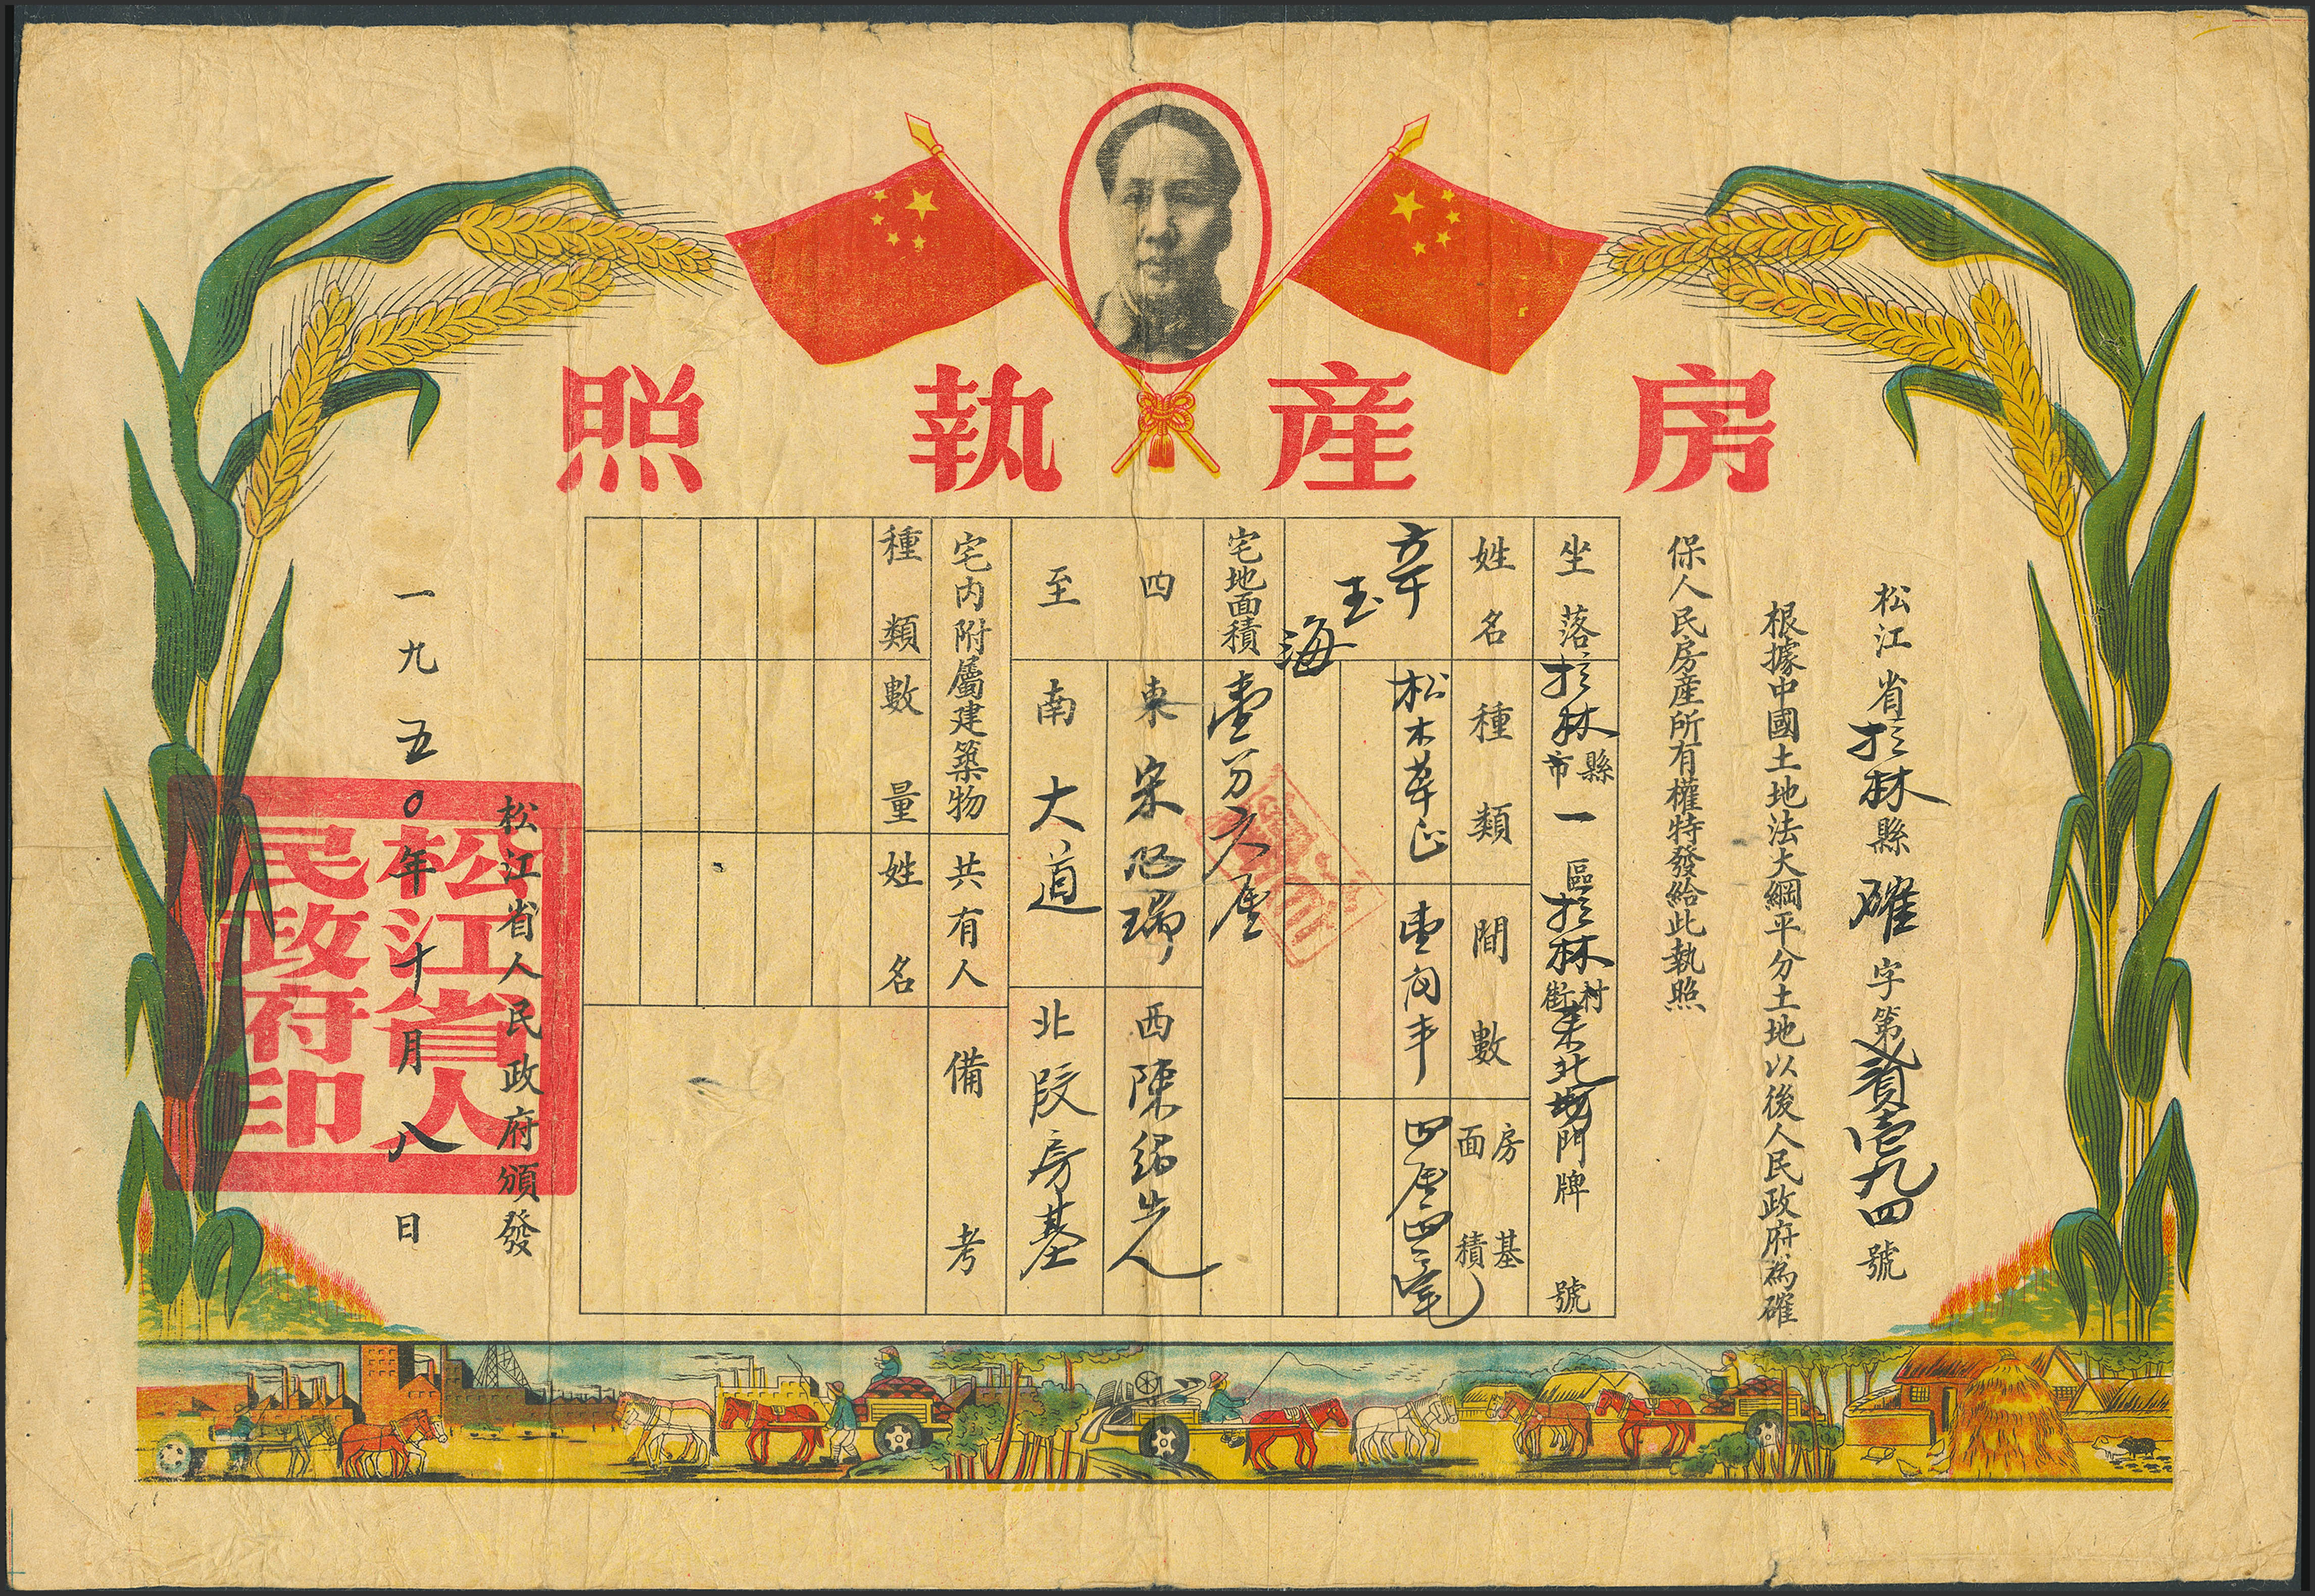 房產執照
松江省拉林縣確字第貳壹九四號
根據中國土地法大綱平分土地以後人民政府為確
保人民房產所有權特發給此執照
坐落 拉林縣市一區拉林村街 門牌 號
姓名 種類 間數 房基面積
辛玉海 松木草正 壹間半 四厘四
宅地面積 壹分六厘
四至
東 宋 瑞 西 陳紹先
南 大道 北 段房基
宅內附屬建築物 共有人 備考
種類 數量 姓名
松江省人民政府頒發
一九五〇年十月八日
松江省人
民政府印